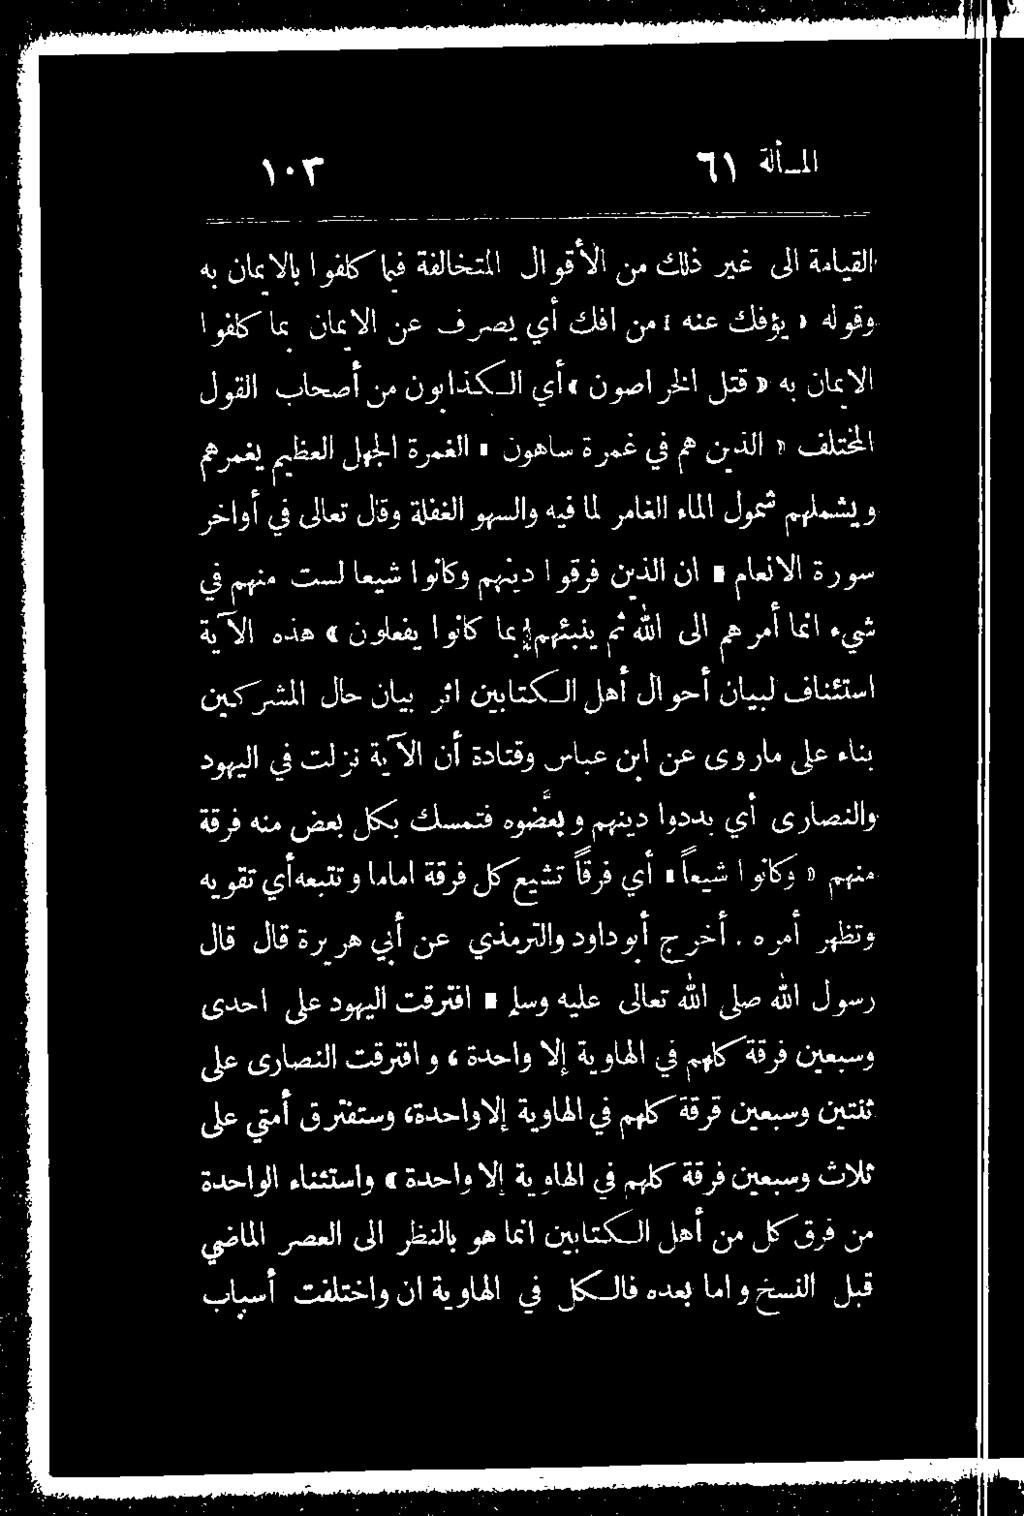 المسألة ٦١ ١٠٣
القيامة الى غير ذلك من الأقوال المتخالفة فيما كلفوا بالايمان به
وقوله « يؤفك عنه » من افك أي يصرف عن الايمان بما كلفوا
الايمان به « قتل الخراصون » أي الكذابون من أصحاب القول
المختلف « الذين هم في غمرة ساهون » الغمرة الجهل العظيم يغمرهم
ويشملهم شمول الماء الغامر لما فيه والسهو الغفلة وقال تعالى في أواخر
سورة الانعام « ان الذين فرقوا دينهم وكانوا شيعا لست منهم في
شيء انما أمرهم الى الله ثم ينبئهم بما كانوا يفعلون » هذه الآية
استئناف لبيان أحوال أهل الكتابين اثر بيان حال المشركين
بناء على ماروى عن ابن عباس وقتادة أن الآية نزلت في اليهود
والنصارى أي بددوا دينهم وبعَّضوه فتمسك بكل بعض منه فرقة
منهم « وكانوا شيعاً » أي فرقاً تشيع كل فرقة اماما وتتبعه أي تقويه
وتظهر أمره . أخرج أبو داود والترمذي عن أبي هريرة قال قال
رسول الله صلى الله تعالى عليه وسلم « افترقت اليهود على احدى
وسبعين فرقة كلهم في الهاوية إلا واحدة ، وافترقت النصارى على
ثنتين وسبعين فرقة كلهم في الهاوية إلا واحدة، وستفترق أمتي على
ثلاث وسبعين فرقة كلهم في الهاوية إلا واحدة » واستثناء الواحدة
من فرق كل من أهل الكتابين انما هو بالنظر الى العصر الماضي
قبل النسخ واما بعده فالكل في الهاوية ان واختلفت أسباب